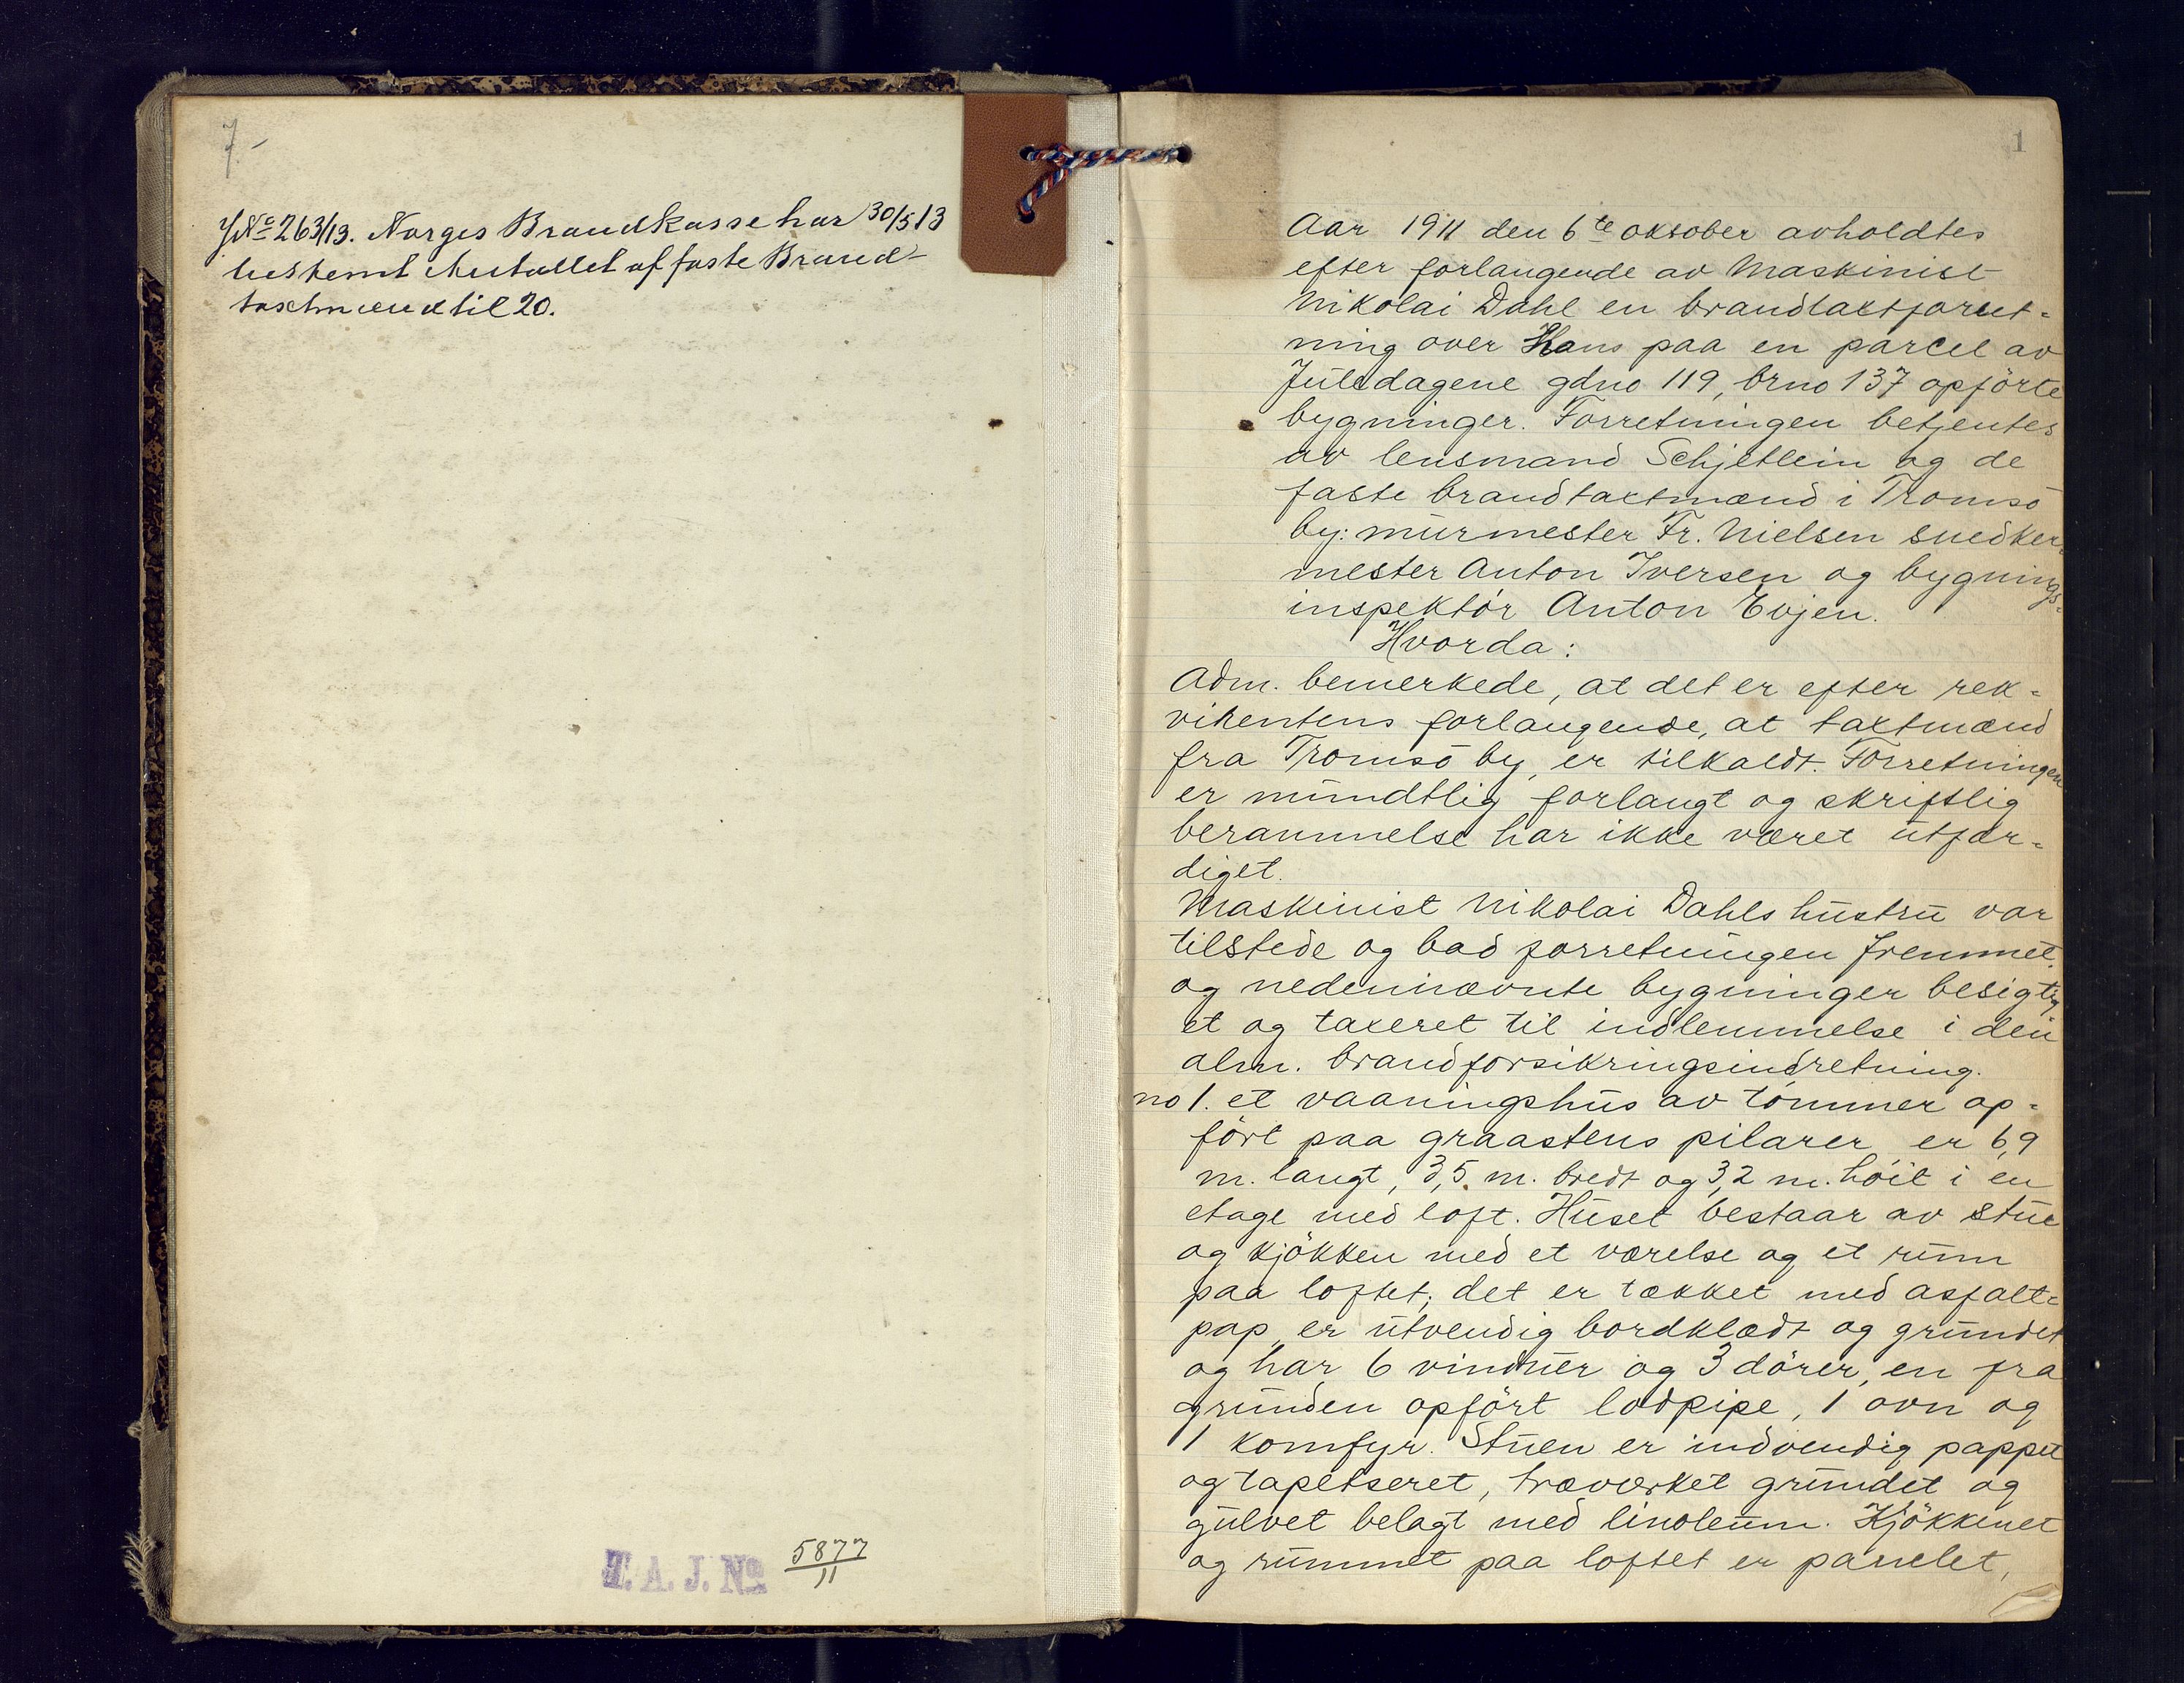 7-
JNo 263/13. Norges Brandkasse har 30/5 13
bestemt Antallet af faste Brand-
taxtmænd til 20.
T. A. J. No 5877/11
1
Aar 1911 den 6te oktober avholdtes
efter forlangende av Maskinist
Nikolai Dahl en brandtaxtforret-
ning over Hans paa en parcel av
Juledagene gdno 119, brno 137 opförte
bygninger. Forretningen betjentes
av lensmand Schjetlein og de
faste brandtaxtmænd i Tromsö
by: murmester Fr. Nielsen snedker-
mester Anton Iversen og bygnings-
inspektör Anton Evjen.
Hvorda:
Adm. bemerkede, at det er efter rek-
virentens forlangende, at taxtmænd
fra Tromsö by, er tilkaldt. Forretningen
er mundtlig forlangt og skriftlig
berammelse har ikke været utfær-
diget.
Maskinist Nikolai Dahls hustru var
tilstede og bad forretningen fremmet.
og nedennævnte bygninger besigtig
et og taxeret til indlemmelse i den
alm. brandforsikringsindretning.
no 1. et vaaningshus av tömmer op-
fört paa graastens pilarer, er 6,9
m. langt, 3,5 m. bredt og 3,2 m. höit i en
etage med loft. Huset bestaar av stue
og kjökken med et værelse og et rum
paa loftet; det er tækket med asfalt-
pap, er utvendig bordklædt og grundet
og har 6 vinduer og 3 dörer, en fra
grunden opfört lodpipe, 1 ovn og
1 komfyr. Stuen er indvendig pappet
og tapetseret, træværket grundet og
gulvet belagt med linoleum. Kjökkenet
og rummet paa loftet er panelet,